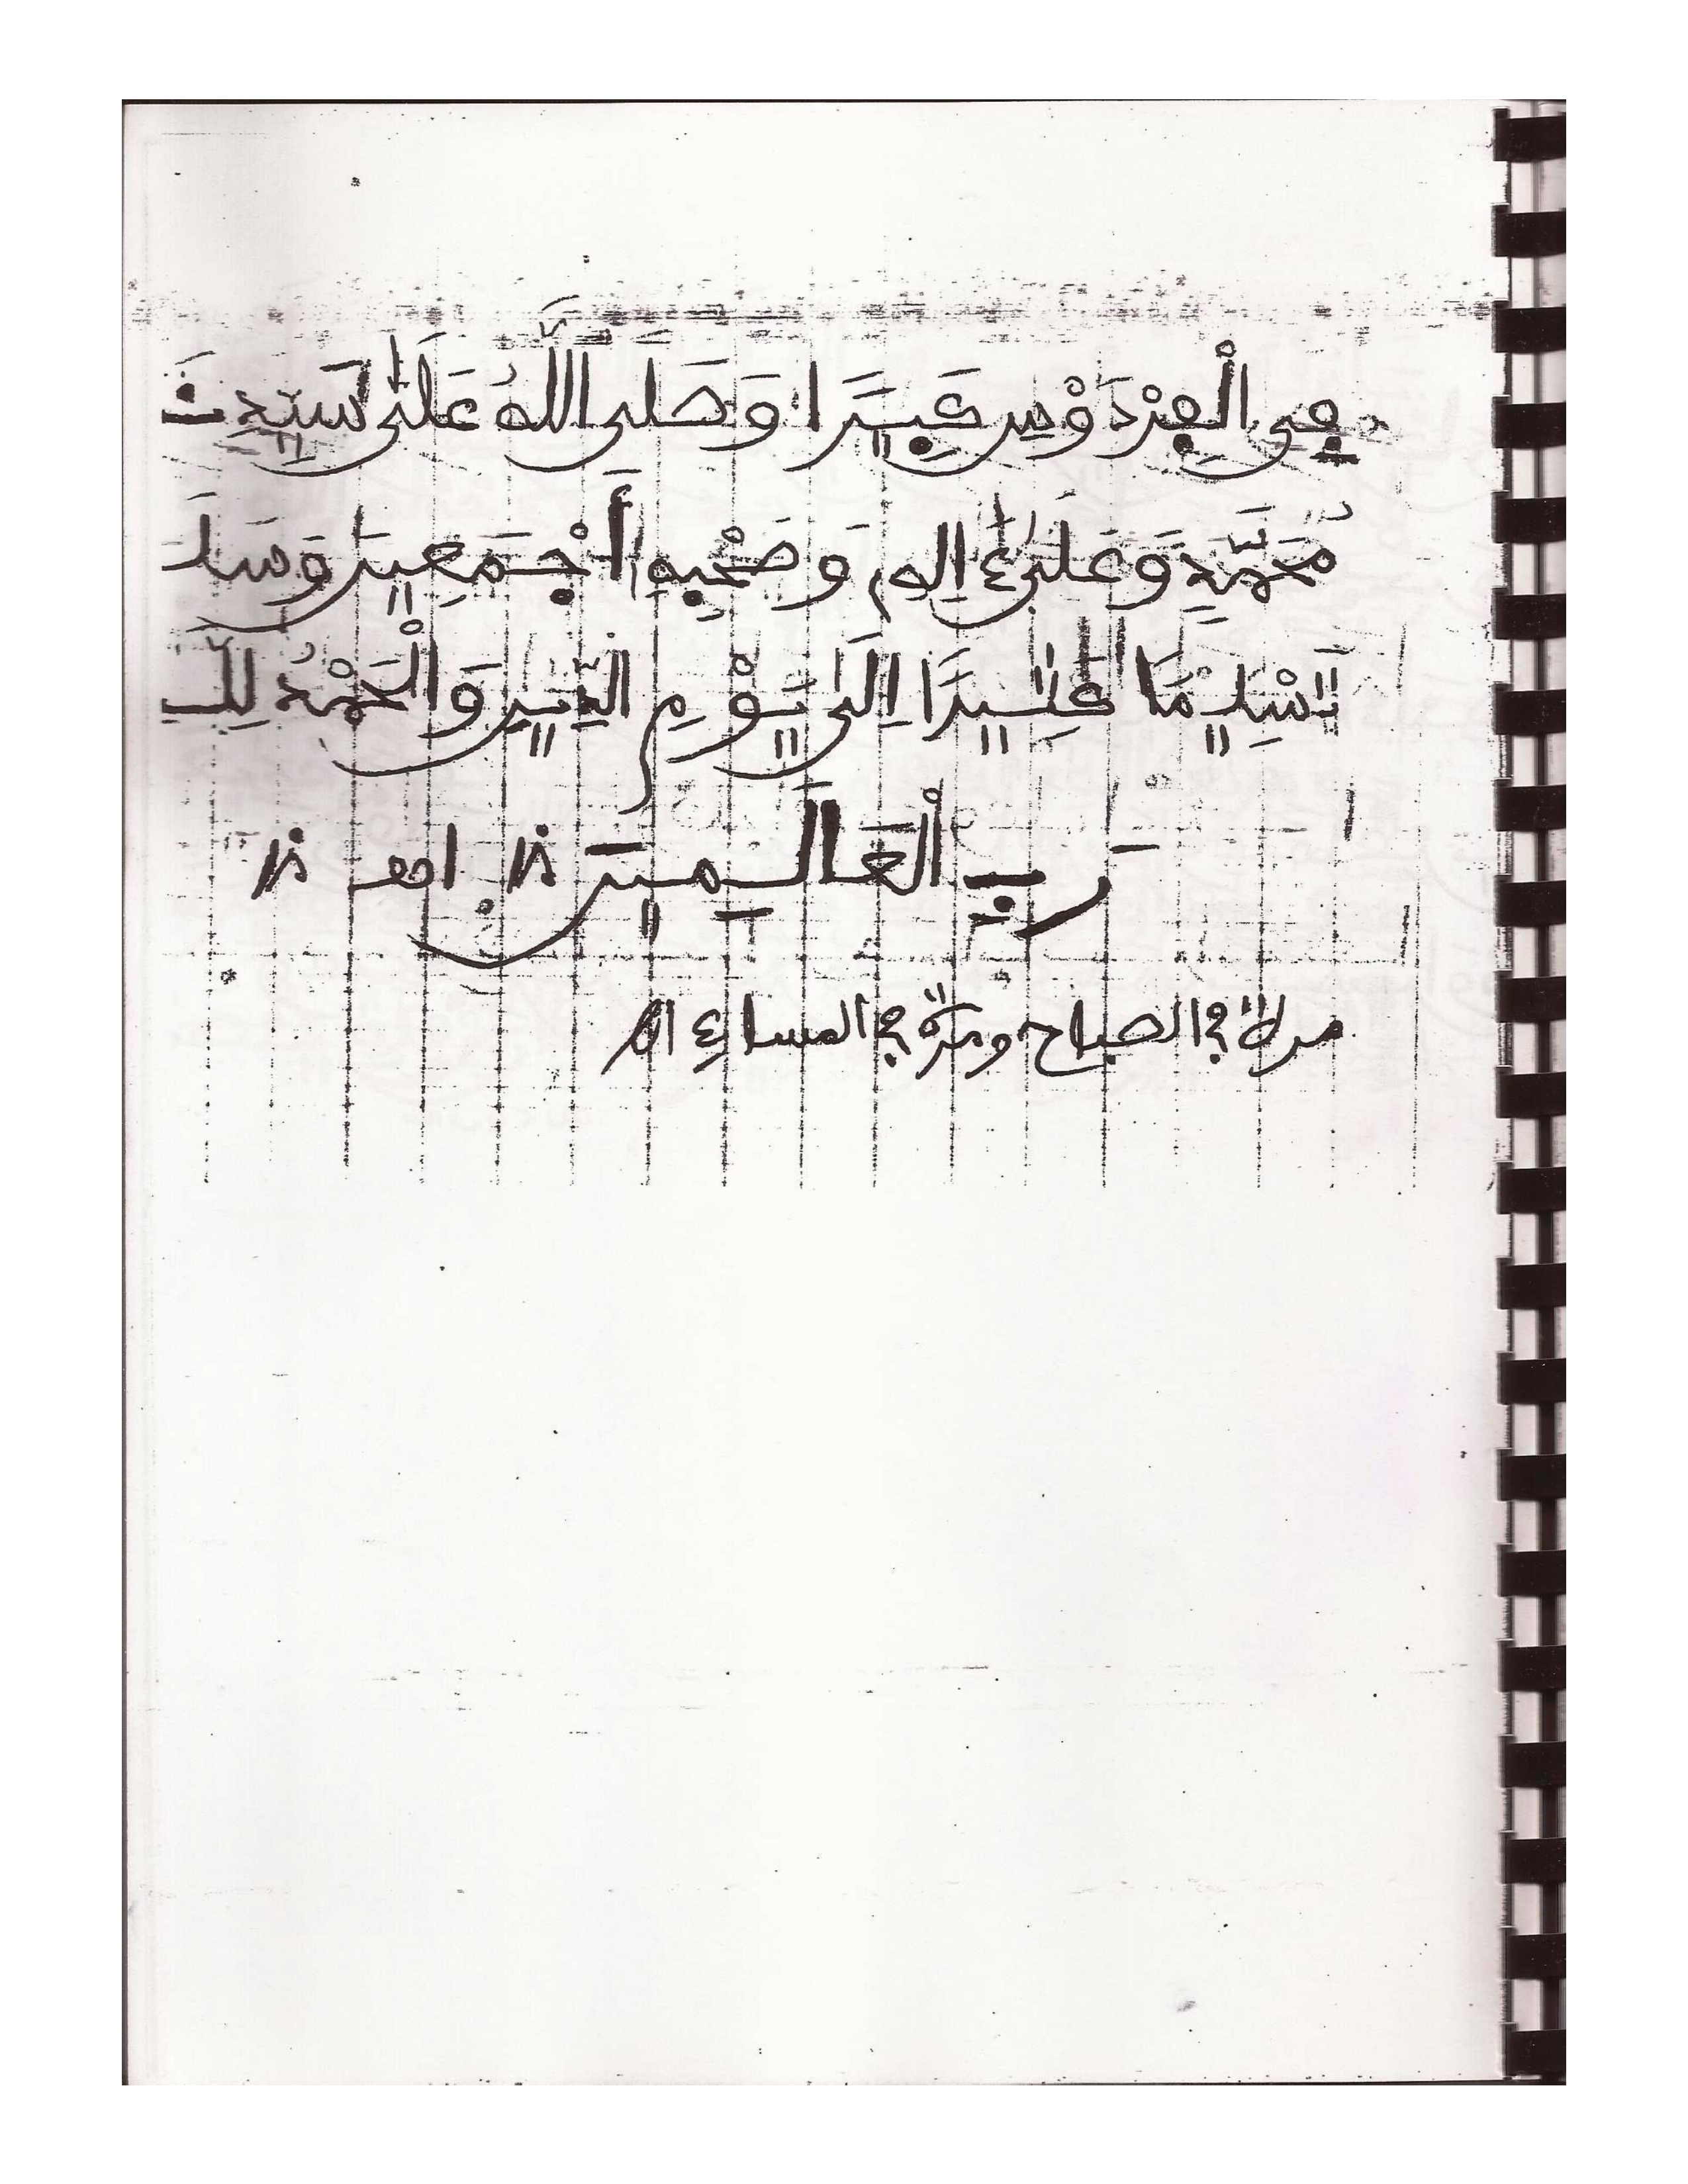 فِي الْفِرْدَوْسِ كَبِيرًا وَصَلَّى اللَّهُ عَلَى سَيِّدِنَ
مُحَمَّدٍ وَعَلَىٰ ءَالِهِ وَصَحْبِهِ أَجْمَعِينَ وَسَلَّ
تَسْلِيمًا كَثِيرًا إِلَى يَوْمِ الدِّينِ وَالْحَمْدُ لِلَّ
رَبِّ الْعَالَمِينَ
مرة في الصباح ومرة في المساء